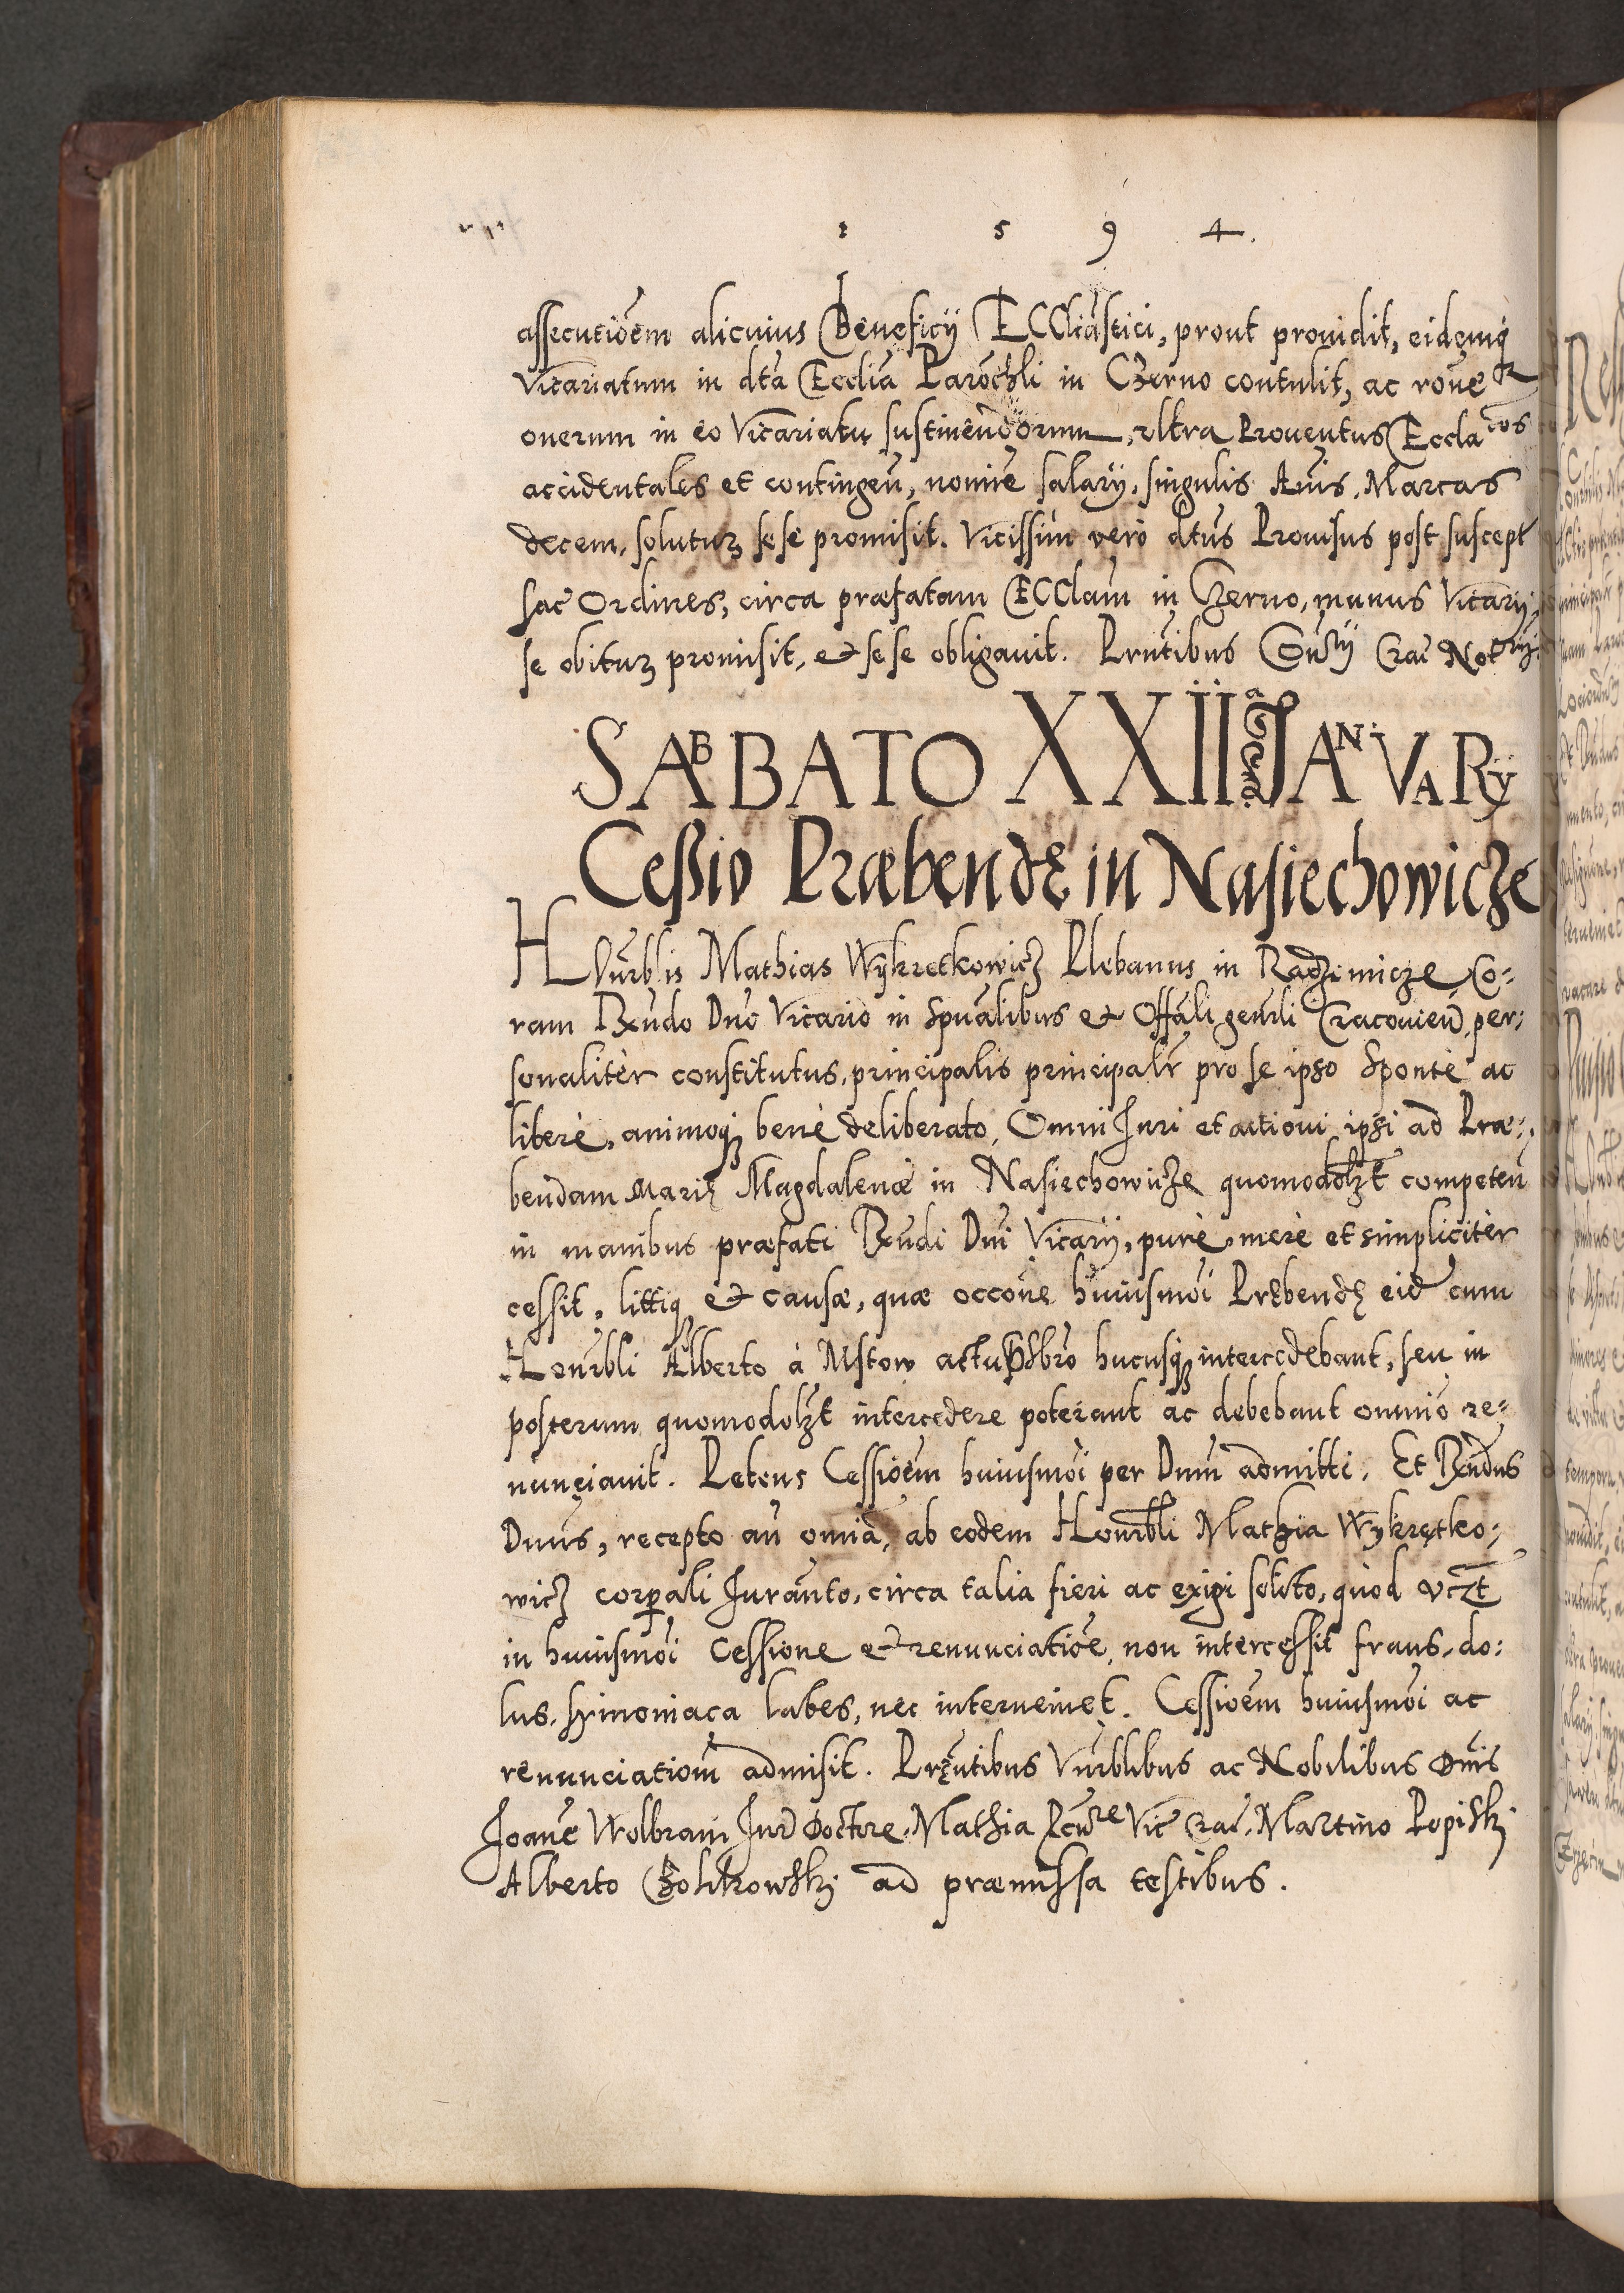 1 5 9 4.
assecutiōem alicuius Beneficij ECCliāstici, prout prouidit, eidemq
Vicariatum in dta Ecclia Parochli in Czerno contulit, ac rone
onerum in eo Vicariatu sustinendorum, vltra Prouentus Eccla cos
accidentales et contingeñ, nomine salarij, singulis Anis, Marcas
decem, soluturȝ sese promisit. Vicissim vero dtus Prouisus post suscept
sac Ordines, circa præfatam ECClam in Czerno, munus Vicarij,
se obiturȝ promisit, & sese obligauit. Prntibus Conrij Crac Notrij
SABBATO XXIIa JANVARy
Ceßio Præbendę in Nasiechowicze
Hourblis Mathias Wÿkrętkowicz Plebanus in Radzimicze, Co:
ram Rxndo Dno Vicario in spualibus & Offali genrli Cracouien, per:
sonaliter constitutus, principalis principalr pro se ipso sponte ac
libere, animoqȝ bene deliberato, Omni Juri et actioni ipsi ad Præ:
bendam Marię Magdalenæ in Nasiechowicze quomodolzt competen
in manibus præfati Rxndi Dni Vicarij, pure, mere et simpliciter
cessit, littiqȝ & causæ, quæ occone huiusmoi Prębendę eid cum
Honrbli Alberto à Mstow actu Psbro hucusqȝ intercedebant, seu in
posterum quomodolzt intercedere poterant ac debebant omnio re:
nunciauit. Petens Cessioem huiusmoi per Dnum admitti. Et Rxndus
Dnus, recepto an omnia, ab eodem Honrbli Mathia Wykrętko:
wicz corpali Juranto, circa talia fieri ac exigi solito, quod vczt
in huiusmoi Cessione & renunciatioe, non intercessit fraus, do:
lus, symoniaca labes, nec interueniet. Cessioem huiusmoi ac
renunciatiom admisit. Pręntibus Vnrblibus ac Nobilibus Dnis
Joane Wolbram Jur Doctore, Mathia Pcure Vic Crac, Martino Popiski
Alberto Golikowski ad præmissa testibus.